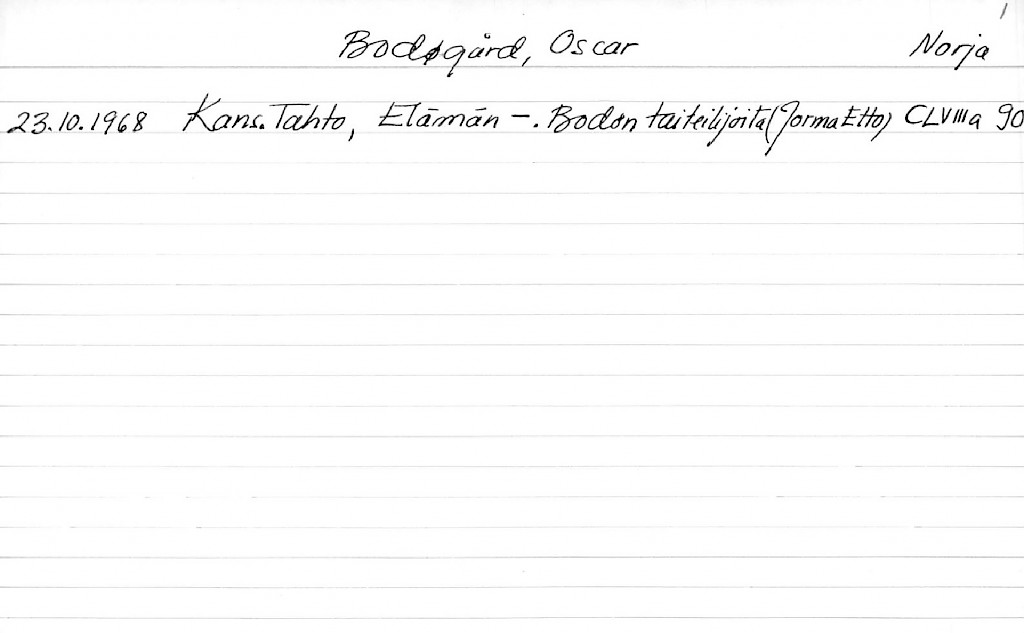 1
Bodøgård, Oscar Norja
23.10.1968 Kans. Tahto, Elämän –. Bodøn taiteilijoita (Jorma Etto) CLVIIIa 90